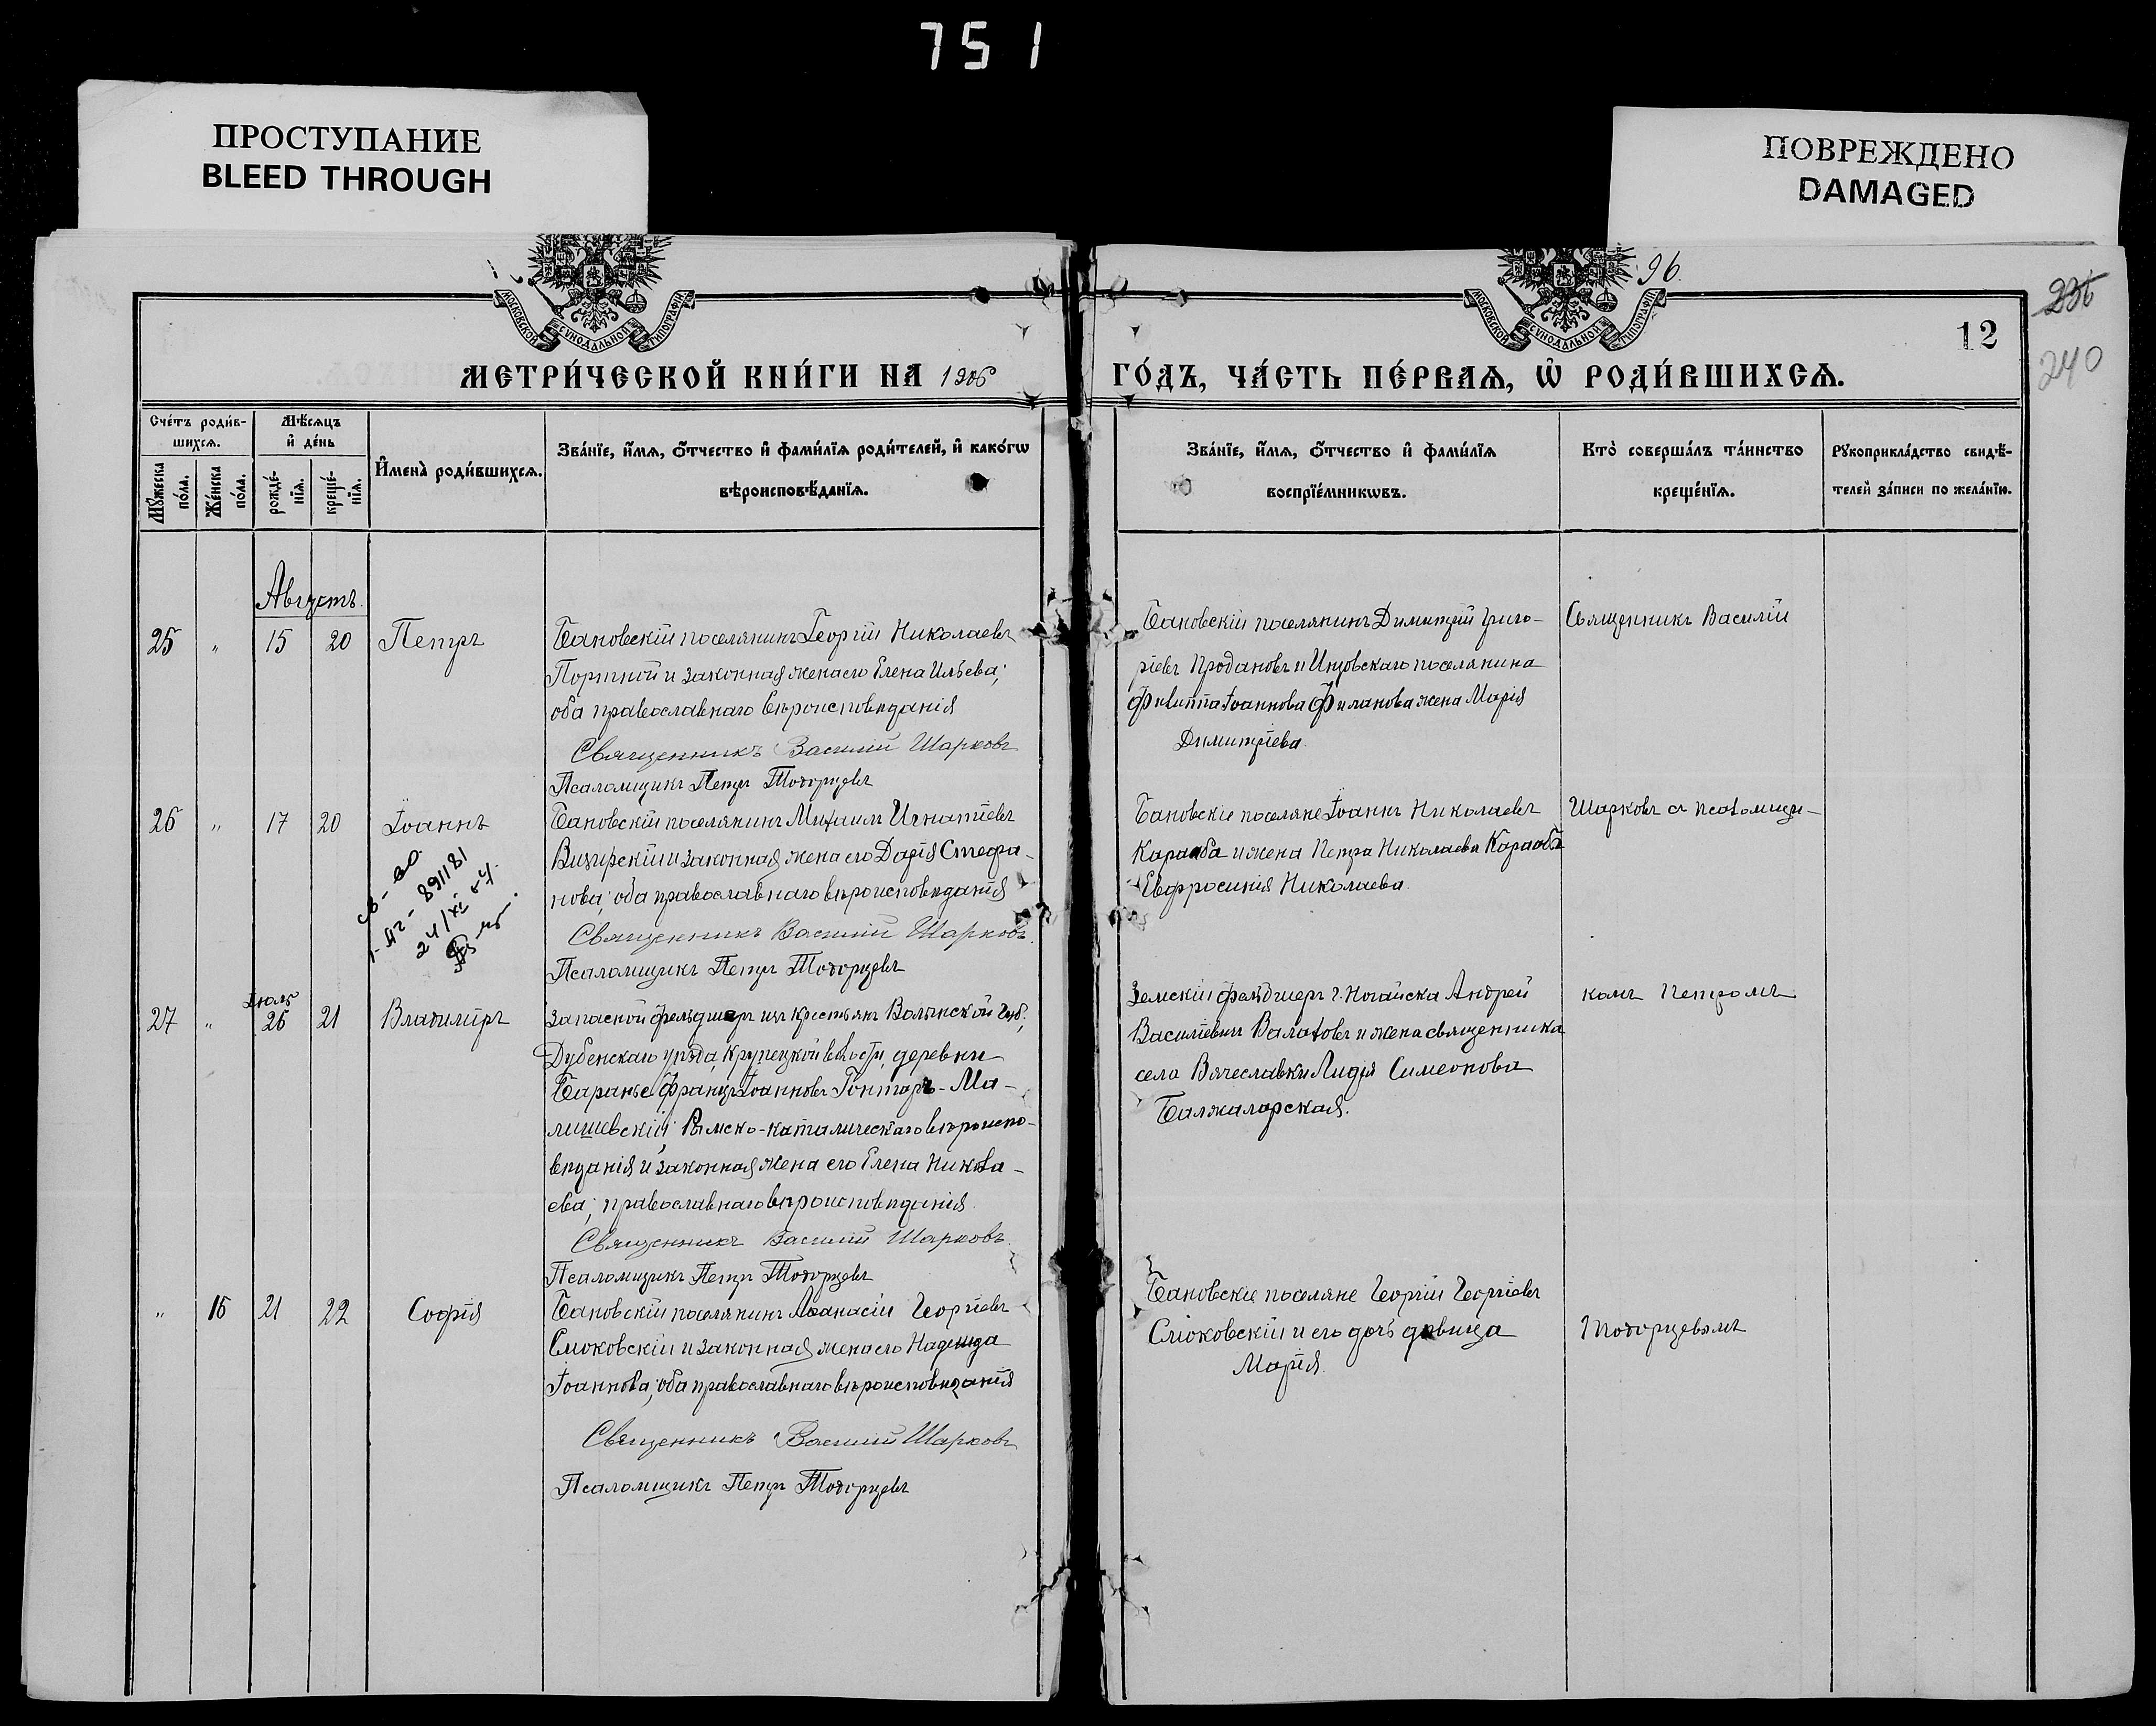 751
ПРОСТУПАНИЕ
BLEED THROUGH
ПОВРЕЖДЕНО
DAMAGED
МОСКОВСКОЙ СѴНОДАЛЬНОЙ ТИПОГРАФІИ
МОСКОВСКОЙ СѴНОДАЛЬНОЙ ТИПОГРАФІИ
96.
236
12
240
МЕТРИ́ЧЕСКОЙ КНИ́ГИ НА 1906
ГО́ДЪ, ЧА́СТЬ ПЕ́РВАѦ, Ѡ҆ РОДИ́ВШИХСѦ.
Сче́тъ роди́в-
шихсѧ.
Мꙋ́жеска по́ла.
Же́нска по́ла.
Мѣ́сѧцъ
и҆ де́нь
рожде́-
нїѧ.
креще́-
нїѧ.
И҆мена̀ роди́вшихсѧ.
Зва́нїе, и҆́мѧ, ѻ҆́тчество и҆ фами́лїѧ роди́телей, и҆ како́гѡ
вѣроисповѣ́данїѧ.
Зва́нїе, и҆́мѧ, ѻ҆́тчество и҆ фами́лїѧ
воспрїе́мникѡвъ.
Кто̀ соверша́лъ та́инство
креще́нїѧ.
Рꙋкоприкла́дство свидѣ́-
телей за́писи по жела́нїю.
Августъ.
25 " 15 20 Петръ
Бановскій поселянинъ Георгій Николаевъ
Портной и законная жена его Елена Ильева;
оба православнаго вѣроисповѣданія
Священникъ Василій Шарковъ
Псаломщикъ Петръ Тодорцевъ
Бановскій поселянинъ Димитрій Григо-
ріевъ Продановъ и Инзовскаго поселянина
Филиппа Іоаннова Филанова жена Марія
Димитріева.
Священникъ Василій
26 " 17 20 Іоаннъ
Бановскій поселянинъ Михаилъ Игнатіевъ
Визирскій и законная жена его Дарія Стефа-
нова; оба православнаго вѣроисповѣданія
Священникъ Василій Шарковъ.
Псаломщикъ Петръ Тодорцевъ
св-во
1-ЯГ-891181
Бановскіе поселяне Іоаннъ Николаевъ
Карааба и жена Петра Николаева Карааба
Евфросинія Николаева.
Шарковъ съ псаломщи-
27 " Іюль 26 21 Владиміръ
Запасной фельдшеръ изъ крестьянъ Волынской губ.,
Дубенскаго уѣзда, Крупецкой волости, деревни
Баранье Францъ Іоанновъ Гонтаръ-Ма-
лишевскій Римско-католическаго вѣроиспо-
вѣданія и законная жена его Елена Никола-
ева; православнаго вѣроисповѣданія.
Священникъ Василій Шарковъ.
Псаломщикъ Петръ Тодорцевъ
Земскій фельдшеръ г. Ногайска Андрей
Василіевъ Валатовъ и жена священника
села Вячеславки Лидія Симеонова
Балжаларская.
комъ Петромъ
" 16 21 22 Софія
Бановскій поселянинъ Аѳанасій Георгіевъ
Смоковскій и законная жена его Надежда
Іоаннова; оба православнаго вѣроисповѣданія
Священникъ Василій Шарковъ
Псаломщикъ Петръ Тодорцевъ
Бановскіе поселяне Георгій Георгіевъ
Смоковскій и его дочь дѣвица
Марія.
Тодорцевымъ